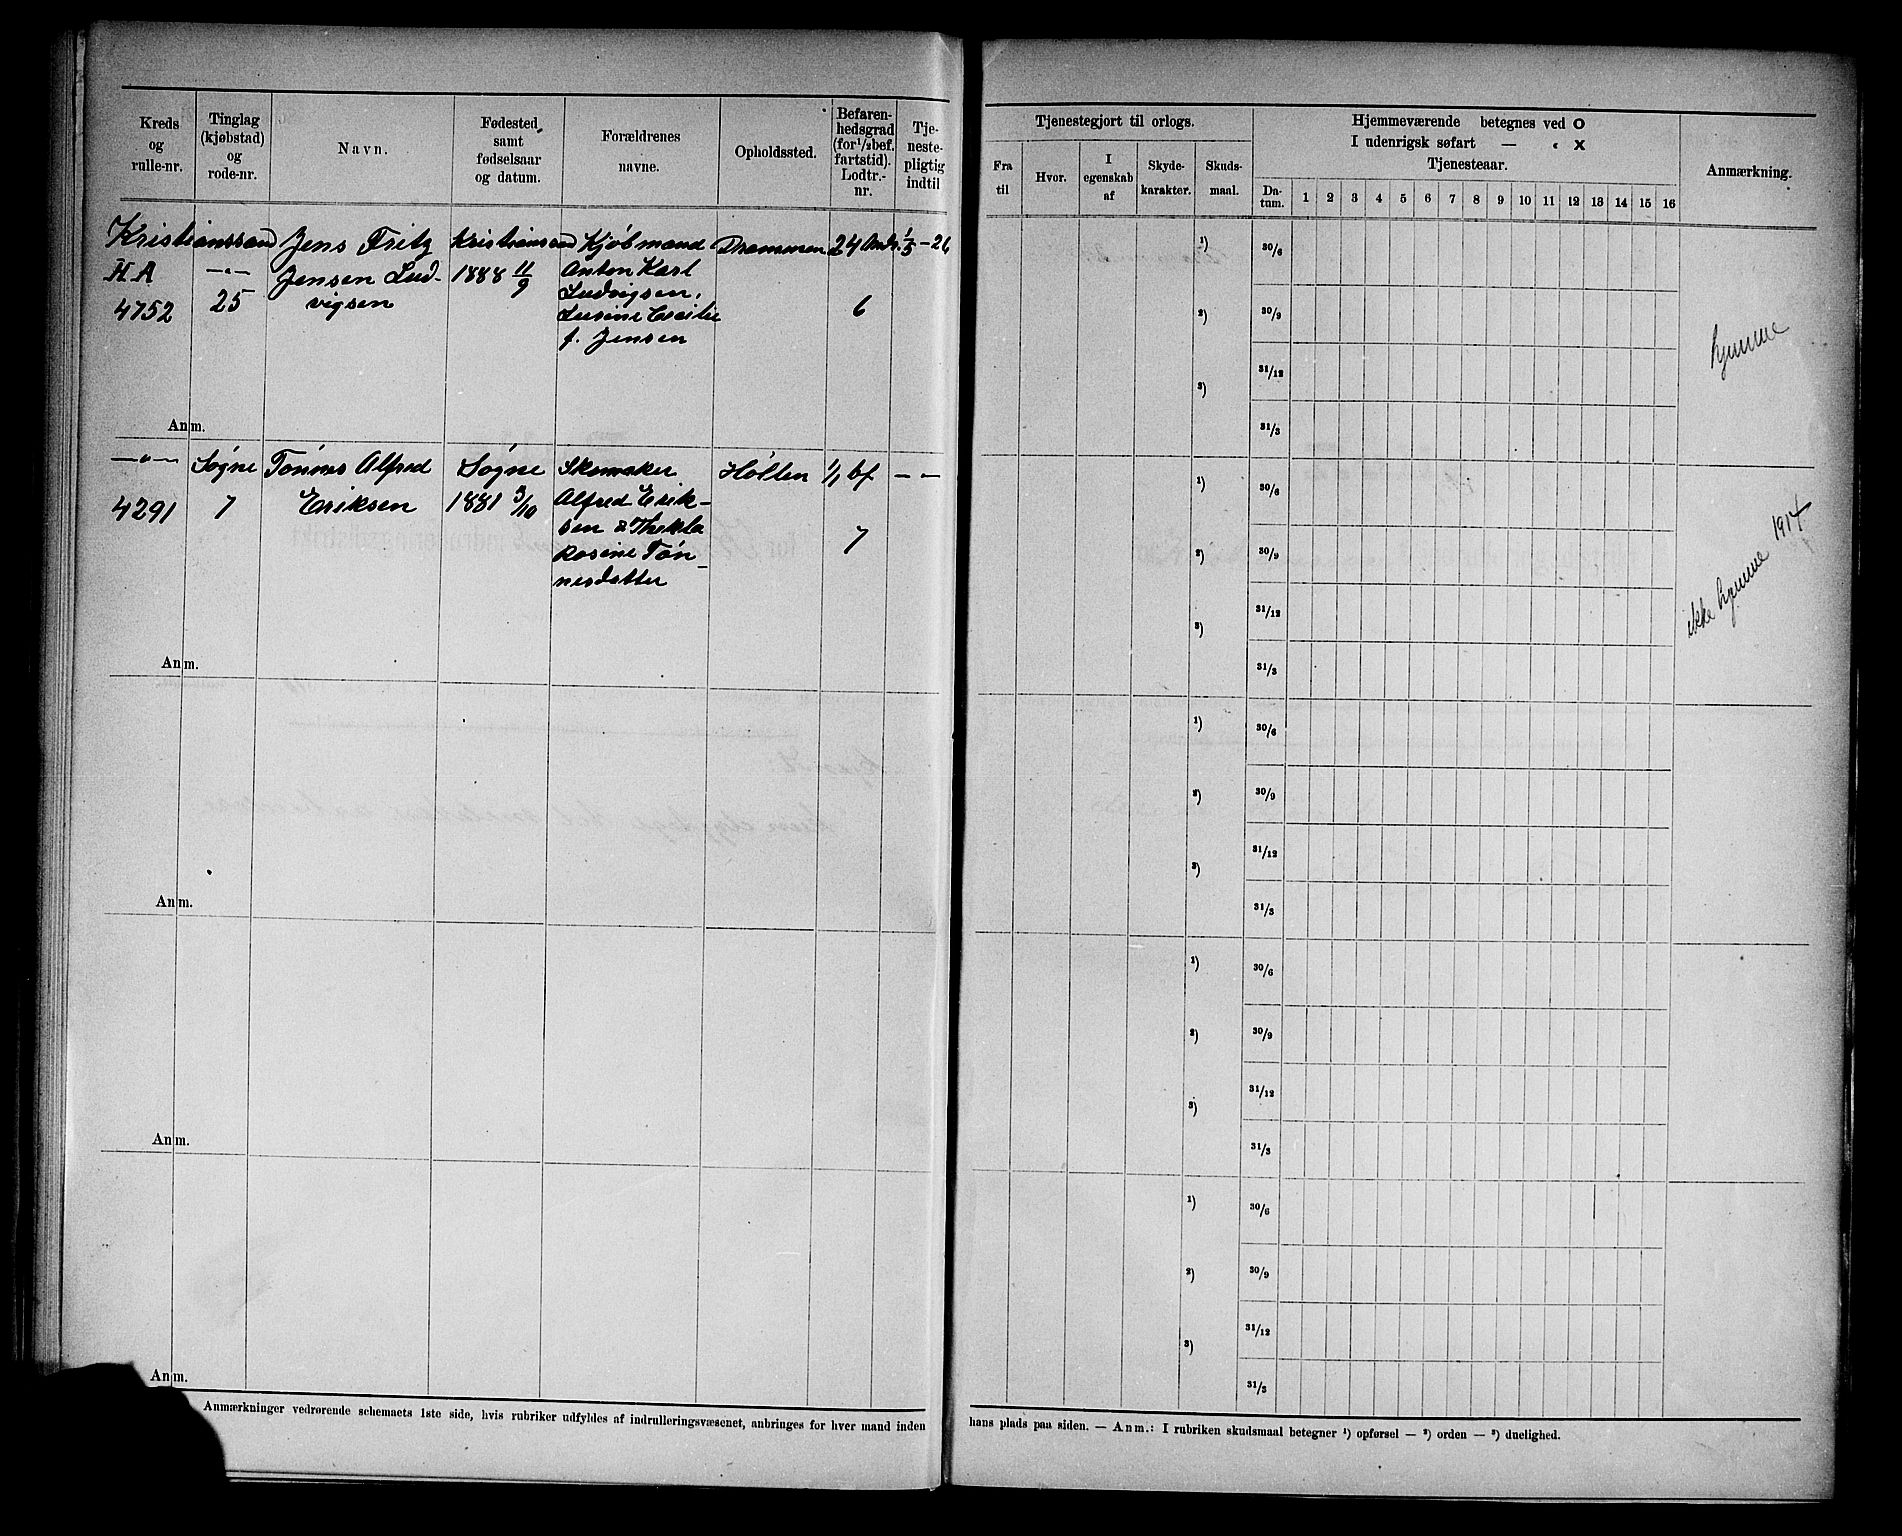 Kreds og rulle-nr.
Tinglag (kjøbstad) og rode-nr.
Navn.
Fødested samt fødselsaar og datum.
Forældrenes navne.
Opholdssted.
Befaren-hedsgrad (for 1/2 bef. fartstid). Lodtr.-nr.
Tje-neste-pligtig indtil
Tjenestegjort til orlogs.
Fra til
Hvor.
I egenskab af
Skyde-karakter.
Skuds-maal.
Hjemmeværende betegnes ved O
I udenrigsk søfart — „ X
Tjenesteaar.
Da-tum.
1 2 3 4 5 6 7 8 9 10 11 12 13 14 15 16
Anmærkning.
Kristianssand
H.A
4752
—„—
25
Jens Fritz
Jensen Lud-
vigsen
Kristianssand
1888 11/9
Kjøbmand
Anton Karl
Ludvigsen,
Lusine Cecilie
f. Jensen
Drammen
24 Mndr.
6
1/5 - 26
1)
2)
3)
30/6
30/9
31/12
31/3
hjemme
Anm.
—„—
4291
Søgne
7
Tønnes Alfred
Eriksen
Søgne
1881 3/10
Skomaker
Alfred Erik-
sen & Thekla
Rosine Tøn-
nesdatter
Høllen
1/1 bf
7
— —
1)
2)
3)
30/6
30/9
31/12
31/3
ikke hjemme 1914
Anm.
1)
2)
3)
30/6
30/9
31/12
31/3
Anm.
1)
2)
3)
30/6
30/9
31/12
31/3
Anm.
1)
2)
3)
30/6
30/9
31/12
31/3
Anm.
Anmærkninger vedrørende schemaets 1ste side, hvis rubriker udfyldes af indrulleringsvæsenet, anbringes for hver mand inden
hans plads paa siden. — Anm.: I rubriken skudsmaal betegner 1) opførsel — 2) orden — 3) duelighed.